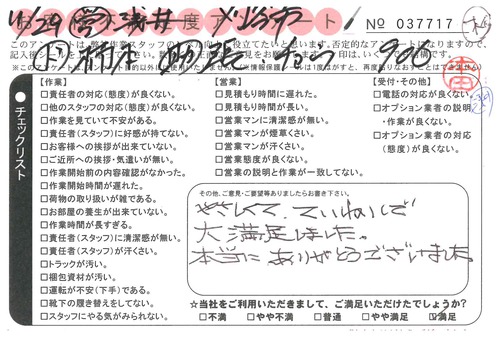 度ア
No 037717
【作業】
□責任者の対応(態度)が良くない。
□他のスタッフの対応(態度)が良くない。
□作業を見ていて不安がある。
□責任者(スタッフ)に好感が持てない。
□お客様への挨拶が出来ていない。
□ご近所への挨拶・気遣いが無い。
□作業開始前の内容確認がなかった。
□作業開始時間が遅れた。
□荷物の取り扱いが雑である。
□お部屋の養生が出来ていない。
□作業時間が長すぎる。
□責任者(スタッフ)に清潔感が無い。
□責任者(スタッフ)が汗くさい。
□トラックが汚い。
□梱包資材が汚い。
□運転が不安(下手)である。
□靴下の履き替えをしてない。
□スタッフにやる気がみられない。
【営業】
□見積もり時間に遅れた。
□見積もり時間が長い。
□営業マンに清潔感が無い。
□営業マンが煙草くさい。
□営業マンが汗くさい。
□営業態度が良くない。
□営業の説明と作業が一致してない。
【受付・その他】
□電話の対応が良くない。
□オプション業者の説明
・作業が良くない。
□オプション業者の対応
(態度)が良くない。
チェックリスト
その他、ご意見・ご要望等ありましたらお書き下さい。
やさしくて、ていねいで
大満足しました。
本当にありがとうございました
☆当社をご利用いただきまして、ご満足いただけたでしょうか?
□不満 □やや不満 □普通 □やや満足 ☑満足